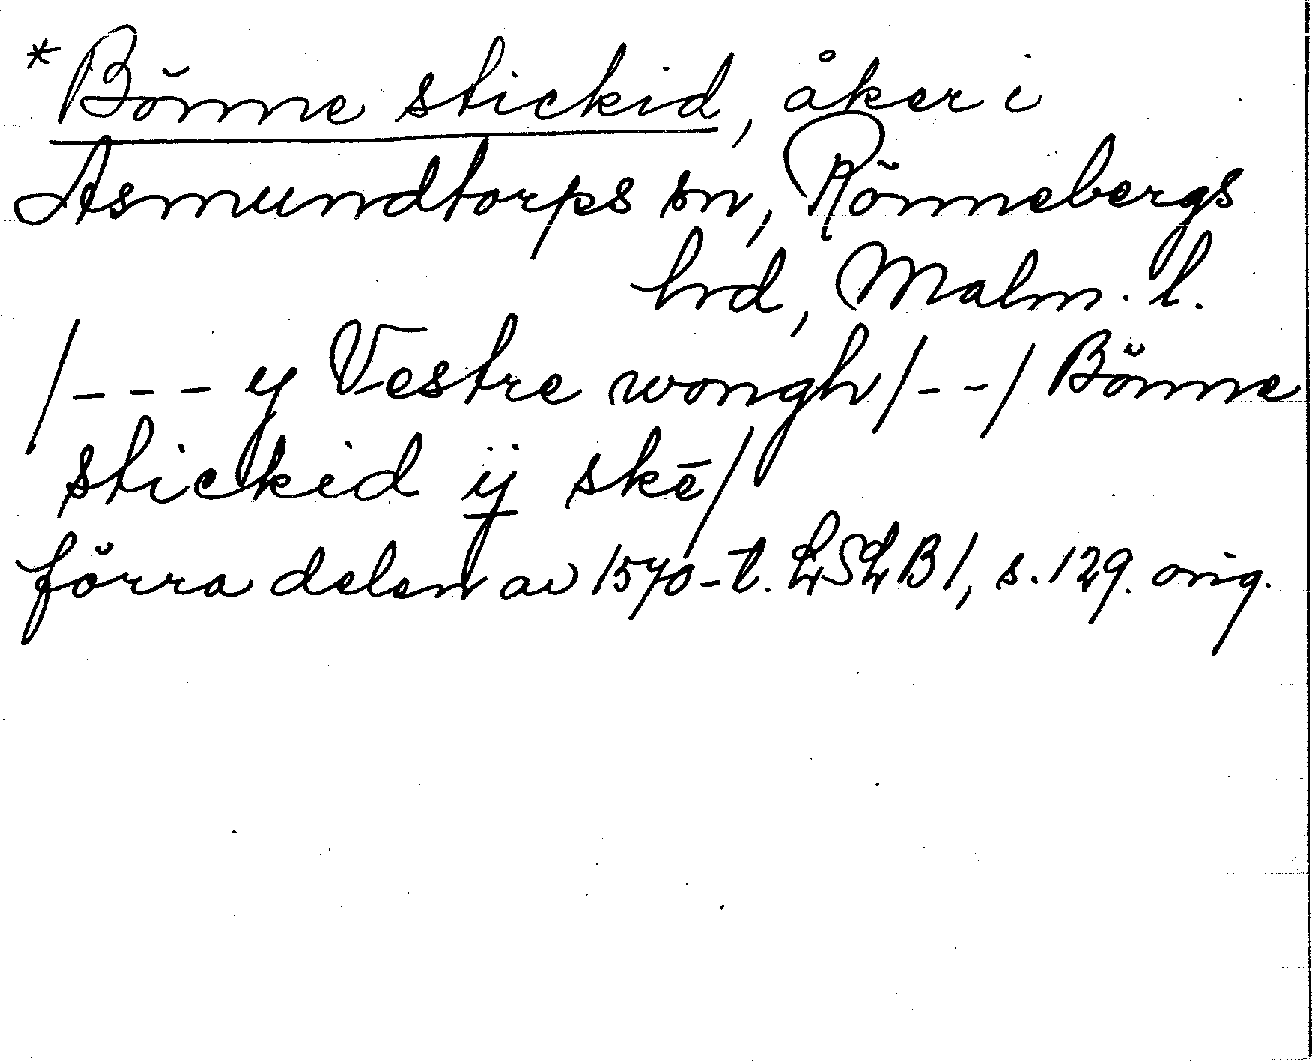 *Bönne stickid, åker i
Asmundtorps sn, Rönnebergs
hrd, Malm. l.
/--- y Vestre wongh/--/ Bönne
stickid ij skē/
förra delen av 1570-t. LSLB1, s. 129. orig.